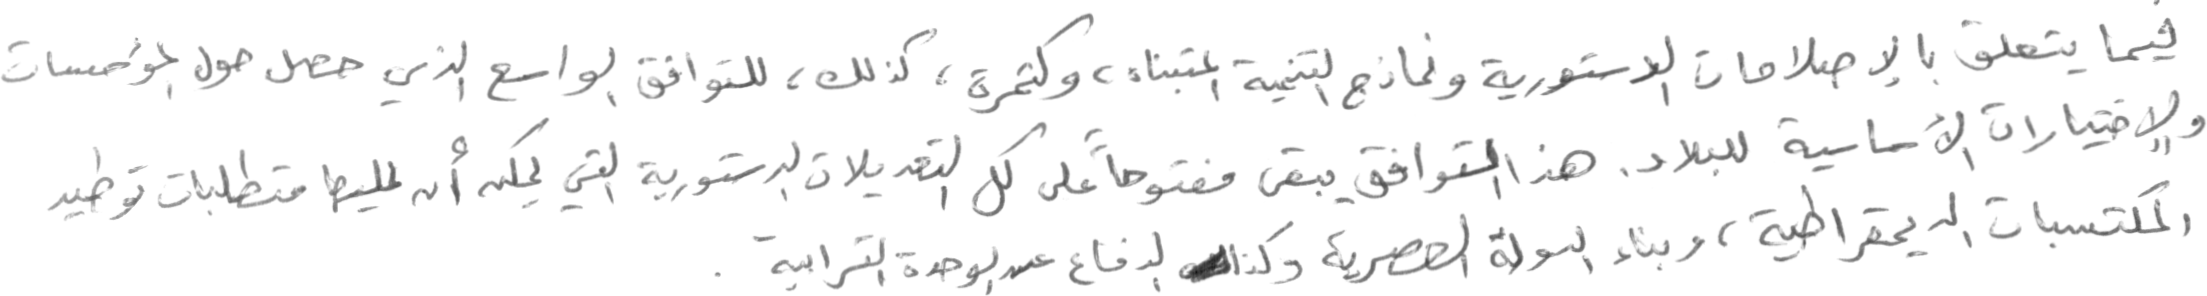 فيما يتعلق بالإصلاحات الدستورية ونماذج التنمية المتبناة، وكثمرة، كذلك، للتوافق الواسع الذي حصل حول المؤسسات
والإختيارات الأساسية للبلاد. هذا التوافق يبقى مفتوحاً على كل التعديلات الدستورية التي يمكن أن تمليها متطلبات توطيد
المكتسبات الديمقراطية، وبناء الدولة العصرية وكذا الدفاع عن الوحدة الترابية.